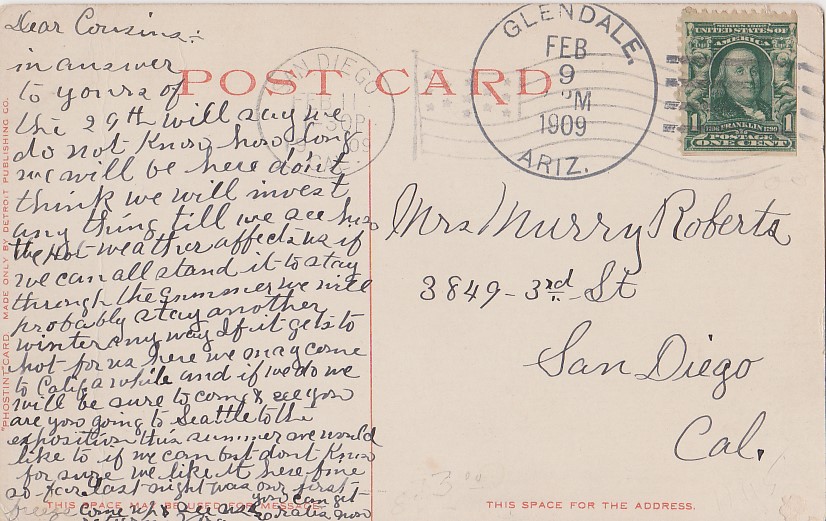 Dear Cousins:
in answer
to yours of
the 29th will say we
do not know how long
we will be here don't
think we will invest
any thing till we see how
the hot weather affects us if
we can all stand it to stay
through the summer we will
probably stay another
winter any way If it gets to
hot for us here we may come
to Calif a while and if we do we
will be sure to come & see you
are you going to Seattle to the
exposition this summer we would
like to if we can but dont know
for sure we like it here fine
so far last night was our first
freeze come up & see us you can get
rates now
POST CARD
THIS SPACE MAY BE USED FOR MESSAGE.
"PHOSTINT" CARD. MADE ONLY BY DETROIT PUBLISHING CO.
SAN DIEGO
FEB 11
30P
1909
CAL.
GLENDALE,
FEB
9
M
1909
ARIZ.
SERIES 1902
UNITED STATES OF
AMERICA
1 1706 FRANKLIN 1790 1
POSTAGE
ONE CENT
Mrs Murry Roberts
3849 - 3rd - St
San Diego
Cal.
THIS SPACE FOR THE ADDRESS.